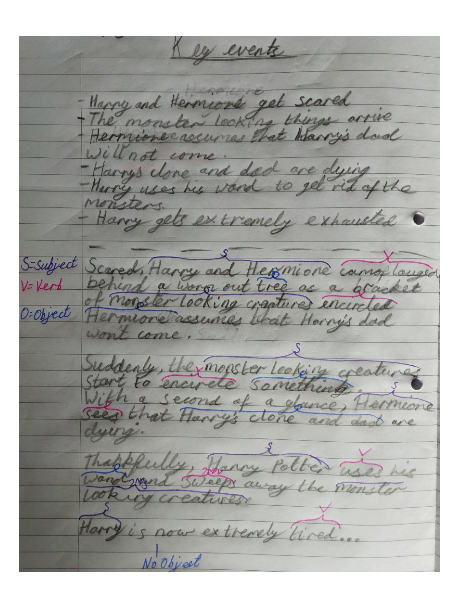 Key events
Hermione
- Harry and Hermione get scared
- The monster looking things arrive
- Hermione assumes that Harry's dad
will not come.
- Harry's clone and dad are dying
- Harry uses his wand to get rid of the
monsters.
- Harry gets extremely exhausted
S V
S=Subject Scared, Harry and Hermione camouflaged
V=Verb behind a worn out tree as a bracket
O=Object of monster looking creatures encircled
Hermione assumes that Harry's dad
won't come.
S
Suddenly, the monster looking creatures
start to encircle something
With a second of a glance, Hermione
sees that Harry's clone and dad are
dying.
S V
Thankfully, Harry Potter uses his
wand and sweeps away the monster
looking creatures
S V
Harry is now extremely tired...
No Object